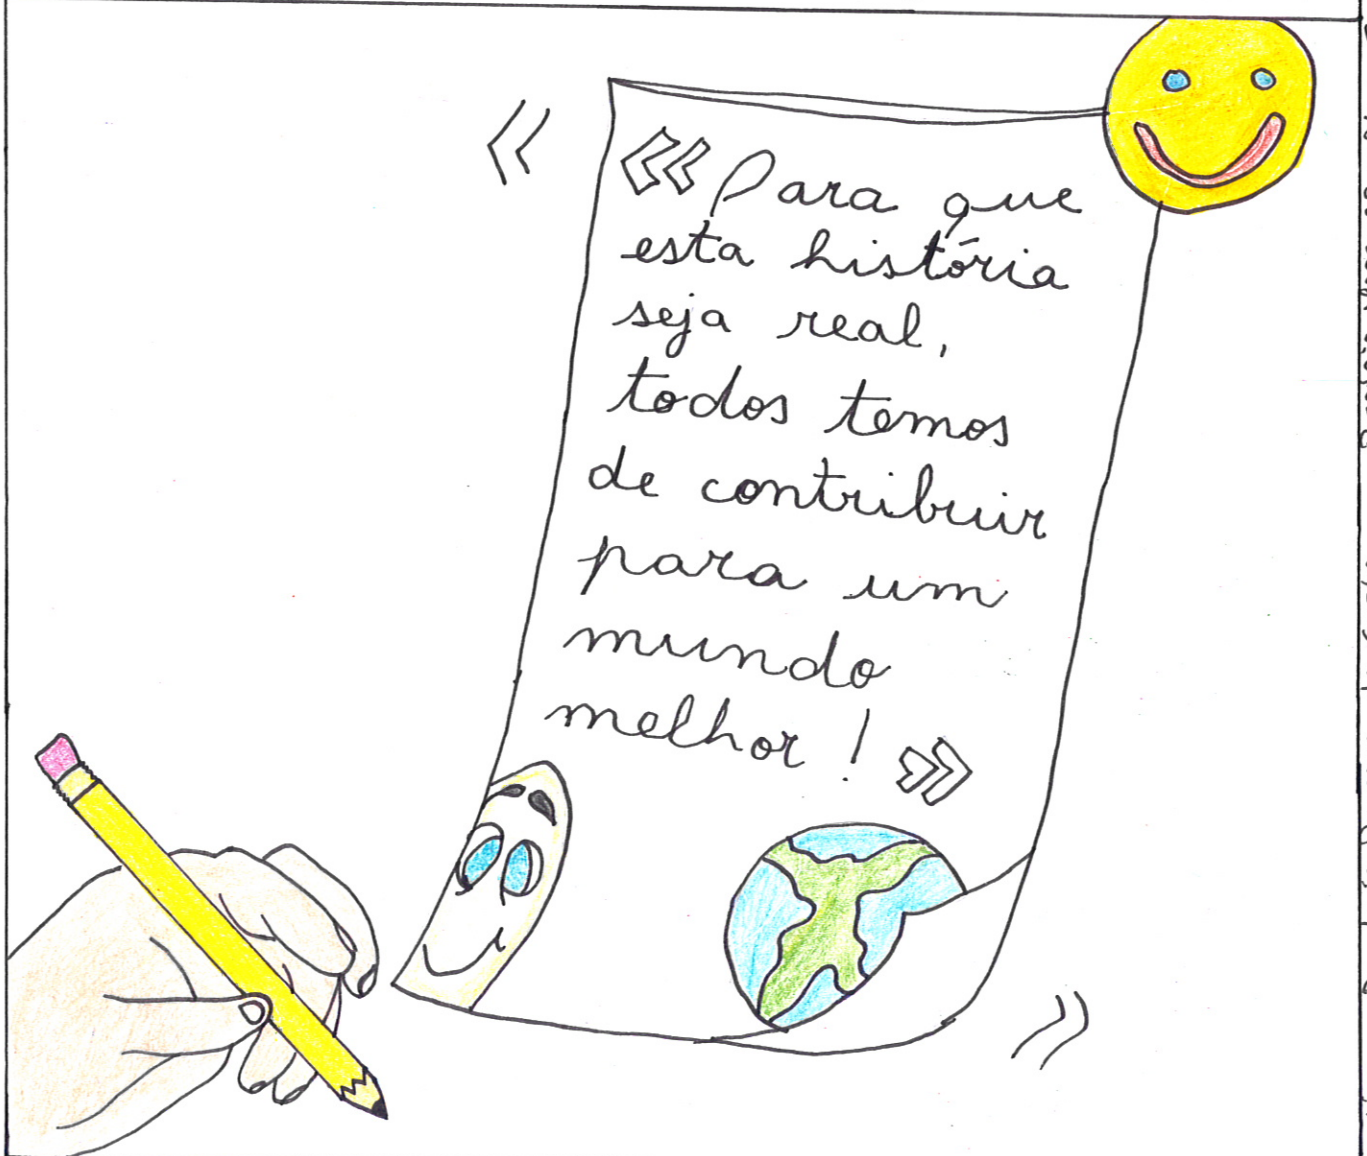 «Para que
esta história
seja real,
todos temos
de contribuir
para um
mundo
melhor! »